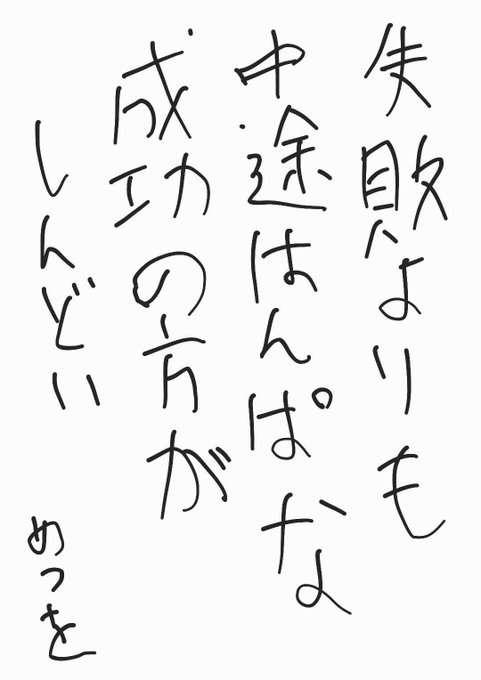 失敗よりも
中途はんぱな
成功の方が
しんどい
めつを